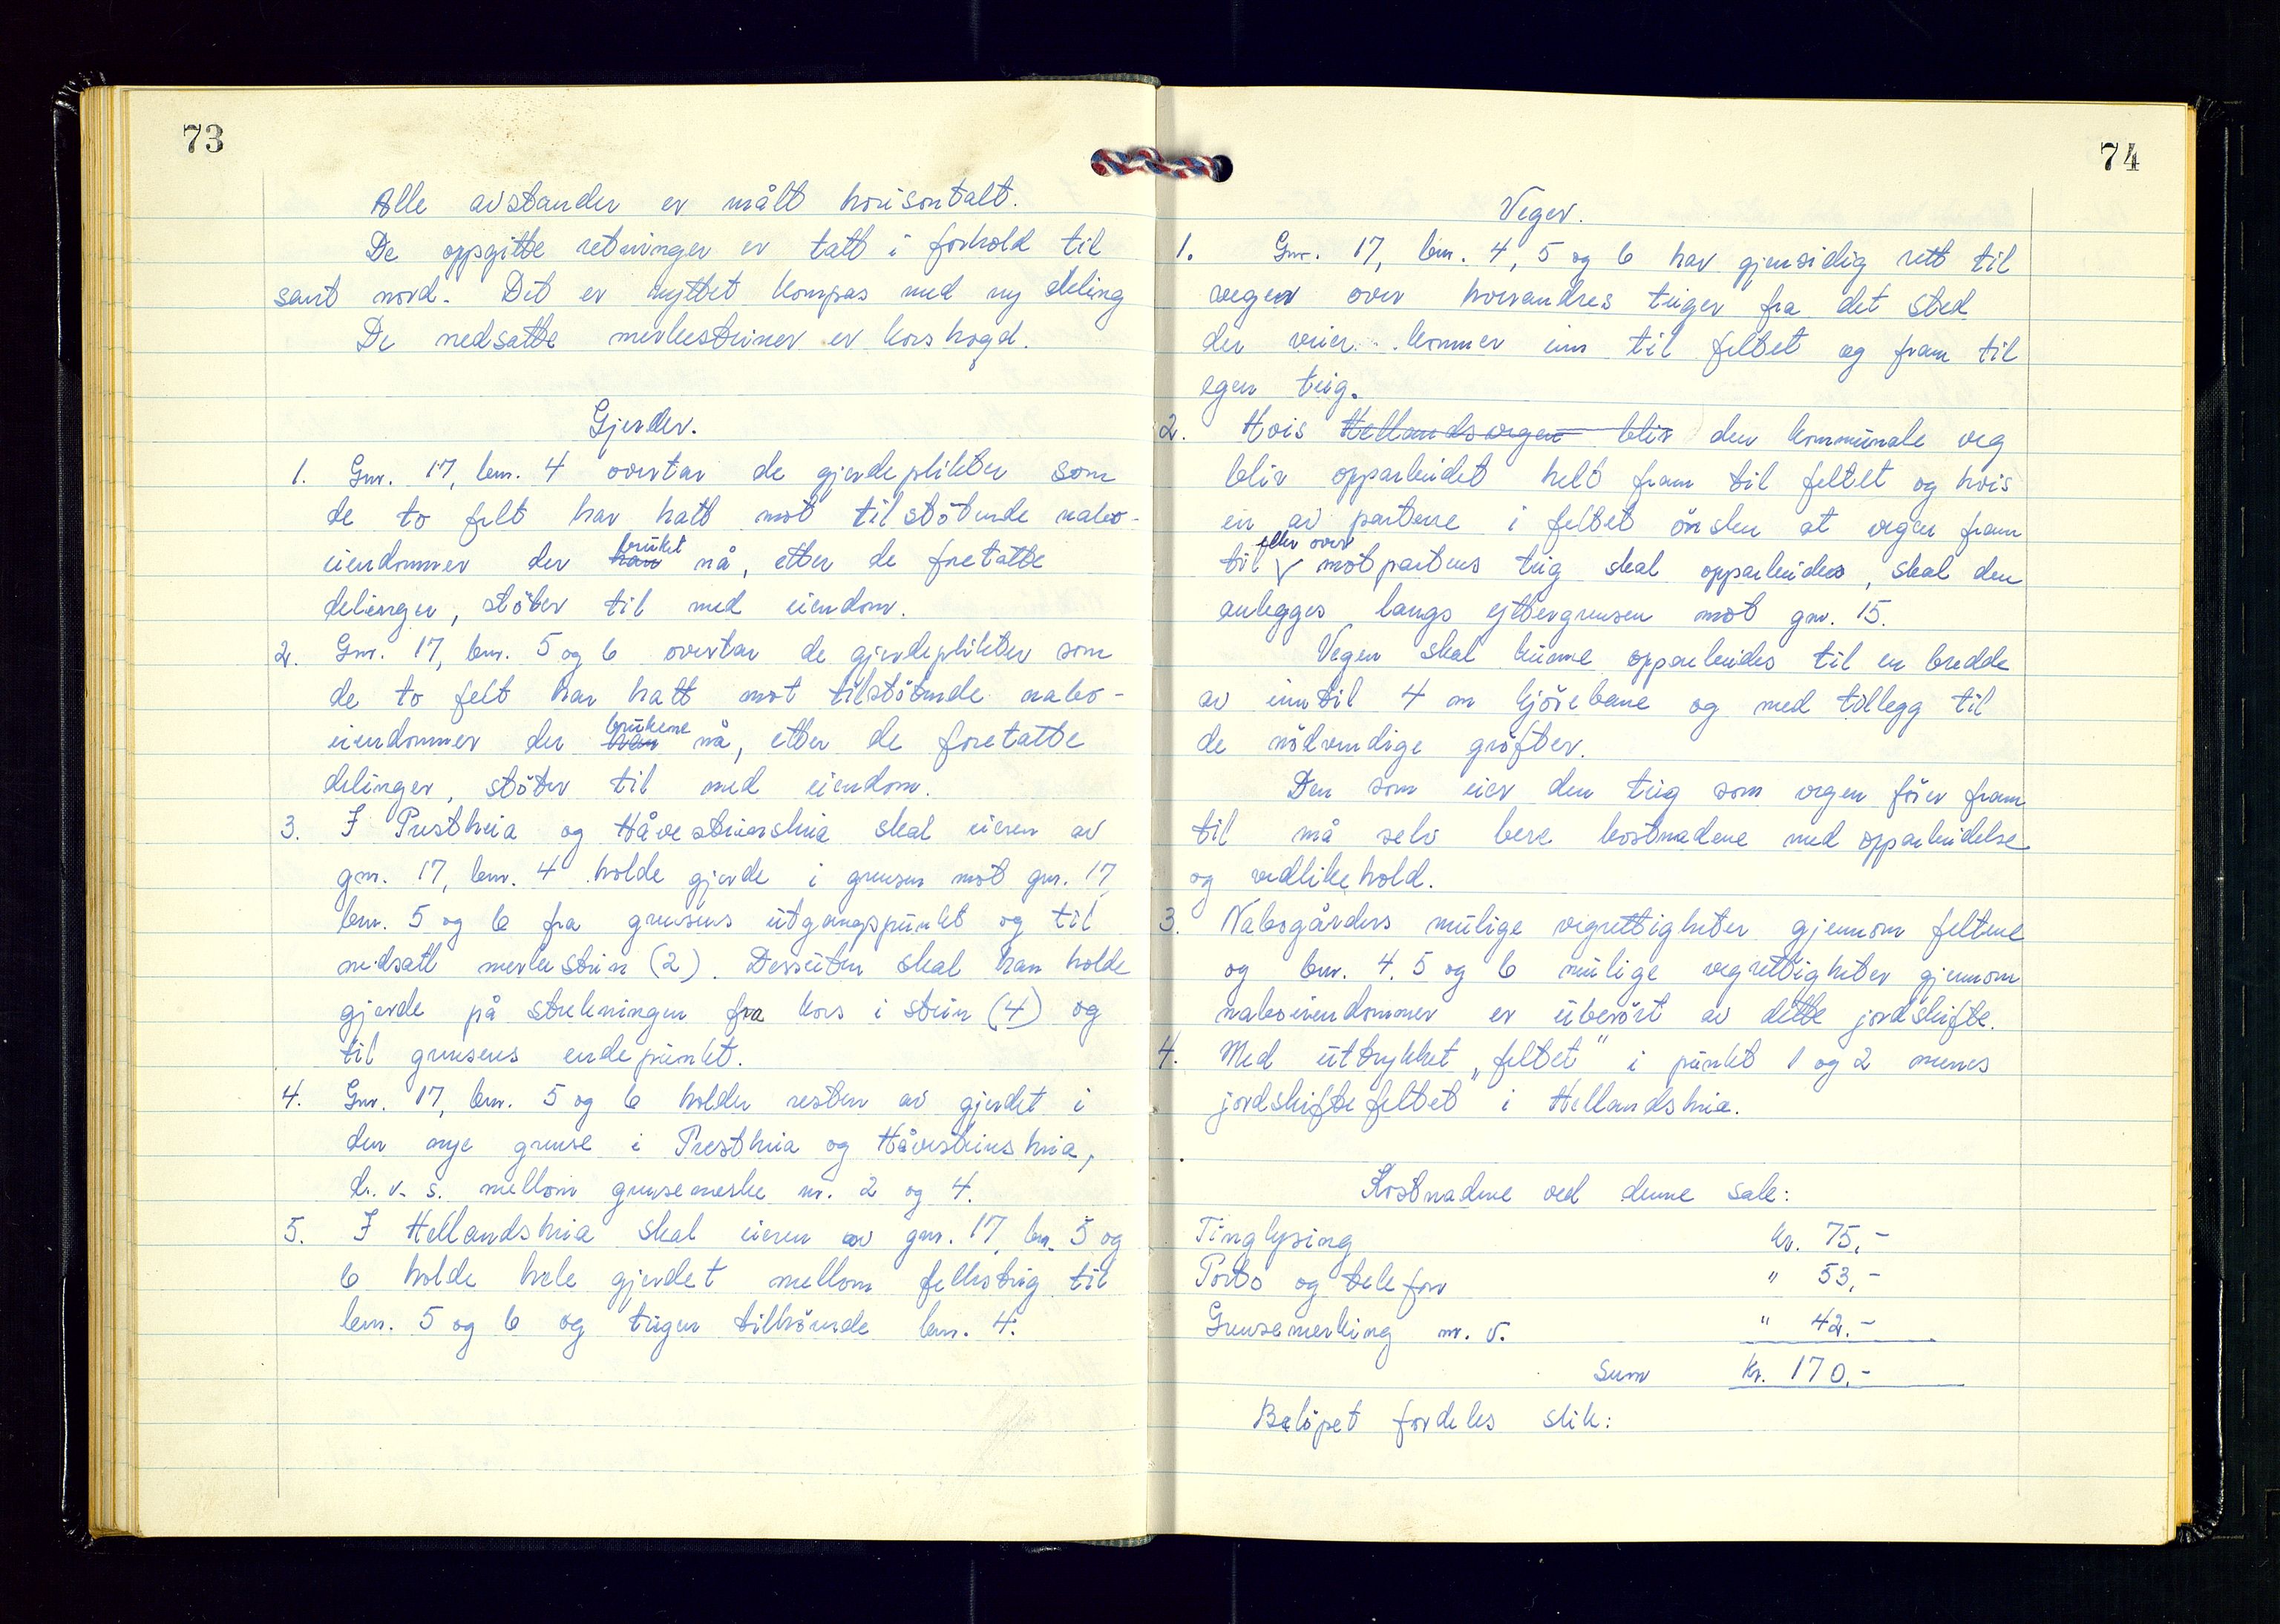 73
Alle avstander er målt horisontalt.
De oppgitte retninger er tatt i forhold til
sant nord. Det er nyttet kompas med ny deling
De nedsatte merkesteiner er korshogd.
Gjerder.
1. Gnr. 17, bnr. 4 overtar de gjerdeplikter som
de to felt har hatt mot tilstötende nabo-
eiendommer der han bruket nå, etter de foretatte
delinger, stöter til med eiendom.
2. Gnr. 17, bnr. 5 og 6 overtar de gjerdeplikter som
de to felt har hatt mot tilstötende nabo-
eiendommer der han brukene nå, etter de foretatte
delinger, stöter til med eiendom.
3. I Prestheia og Håvesteinsheia skal eieren av
gnr. 17, bnr. 4 holde gjerde i grensen mot gnr. 17,
bnr. 5 og 6 fra grensens utgangspunkt og til
nedsatt merkestein (2). Dessuten skal han holde
gjerde på strekningen fra kors i stein (4) og
til grensens endepunkt.
4. Gnr. 17, bnr. 5 og 6 holder resten av gjerdet i
den nye grense i Prestheia og Håvesteinsheia,
d. v. s. mellom grensemerke nr. 2 og 4.
5. I Hellandsheia skal eieren av gnr. 17, bnr. 5 og
6 holde hele gjerdet mellom fellesteig til
bnr. 5 og 6 og teigen tilhörende bnr. 4.
74
Veger.
1. Gnr. 17, bnr. 4, 5 og 6 har gjensidig rett til
veger over hverandres teiger fra det sted
der veier kommer inn til feltet og fram til
egen teig.
2. Hvis Hellandsvegen blir den kommunale veg
blir opparbeidet helt fram til feltet og hvis
en av partene i feltet önsker at vegen fram
eller over
til V motpartens teig skal opparbeides, skal den
anlegges langs yttergrensen mot gnr. 15.
Vegen skal kunne opparbeides til en bredde
av inntil 4 m kjörebane og med tillegg til
de nödvendige gröfter.
Den som eier den teig som vegen förer fram
til må selv bere kostnadene med opparbeidelse
og vedlikehold.
3. Nabogårders mulige vegrettigheter gjennom feltene
og bnr. 4. 5 og 6 mulige vegrettigheter gjennom
naboeiendommer er uberört av dette jordskifte.
4. Med uttrykket „feltet" i punkt 1 og 2 menes
jordskiftefeltet i Hellandsheia.
Kostnadene ved denne sak:
Tinglysing kr. 75,-
Porto og telefon " 53,-
Grensemerking m. v. " 42.-
Sum kr. 170,-
Belöpet fordeles slik: